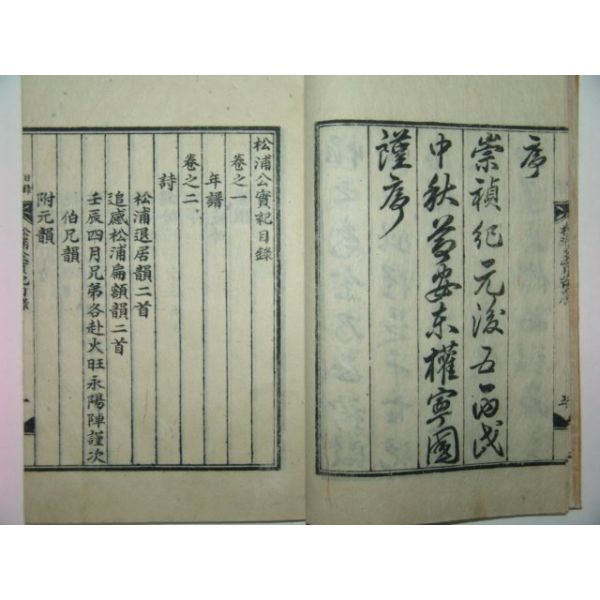 序
崇禎紀元後五丙戌
中秋 安東權寧
謹序
松浦公實紀目錄
卷之一
年譜
卷之二
詩
松浦退居韻二首
追感松浦扁額韻二首
壬辰四月兄弟各赴火旺永陽陣謹次
伯兄韻
附元韻